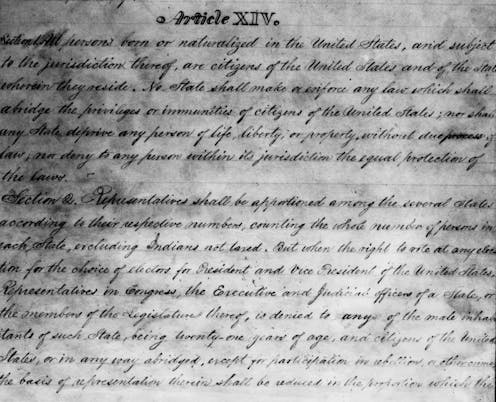 Article XIV.
Section 1. All persons born or naturalized in the United States, and subject
to the jurisdiction thereof, are citizens of the United States and of the State
wherein they reside. No State shall make or enforce any law which shall
abridge the privileges or immunities of citizens of the United States; nor shall
any State deprive any person of life, liberty, or property, without due process of
law; nor deny to any person within its jurisdiction the equal protection of
the laws.
Section 2. Representatives shall be apportioned among the several States
according to their respective numbers, counting the whole number of persons in
each State, excluding Indians not taxed. But when the right to vote at any elec
tion for the choice of electors for President and Vice President of the United States,
Representatives in Congress, the Executive and Judicial officers of a State, or
the members of the Legislature thereof, is denied to any of the male inhab
itants of such State, being twenty-one years of age, and citizens of the United
States, or in any way abridged, except for participation in rebellion, or other crime,
the basis of representation therein shall be reduced in the proportion which the